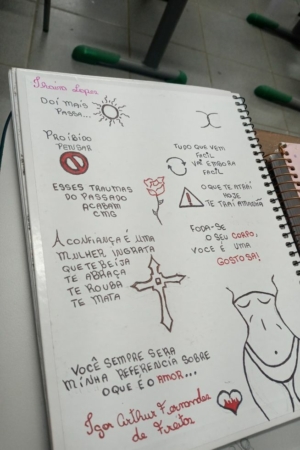 Thaira Lopes
Doí mais
passa...
Proibido
pensar
Tudo que vem
facil
vai embora
facil
Esses traumas
do passado
acabam
cmg
O que te atraí
hoje
te traí amanhã
A confiança é uma
mulher ingrata
que te beija
te abraça
te rouba
te mata
Foda-se
o seu corpo,
você é uma
gostosa!
Você sempre sera
minha referencia sobre
o que é o amor...
Igor Arthur Fernandes
de Freitas